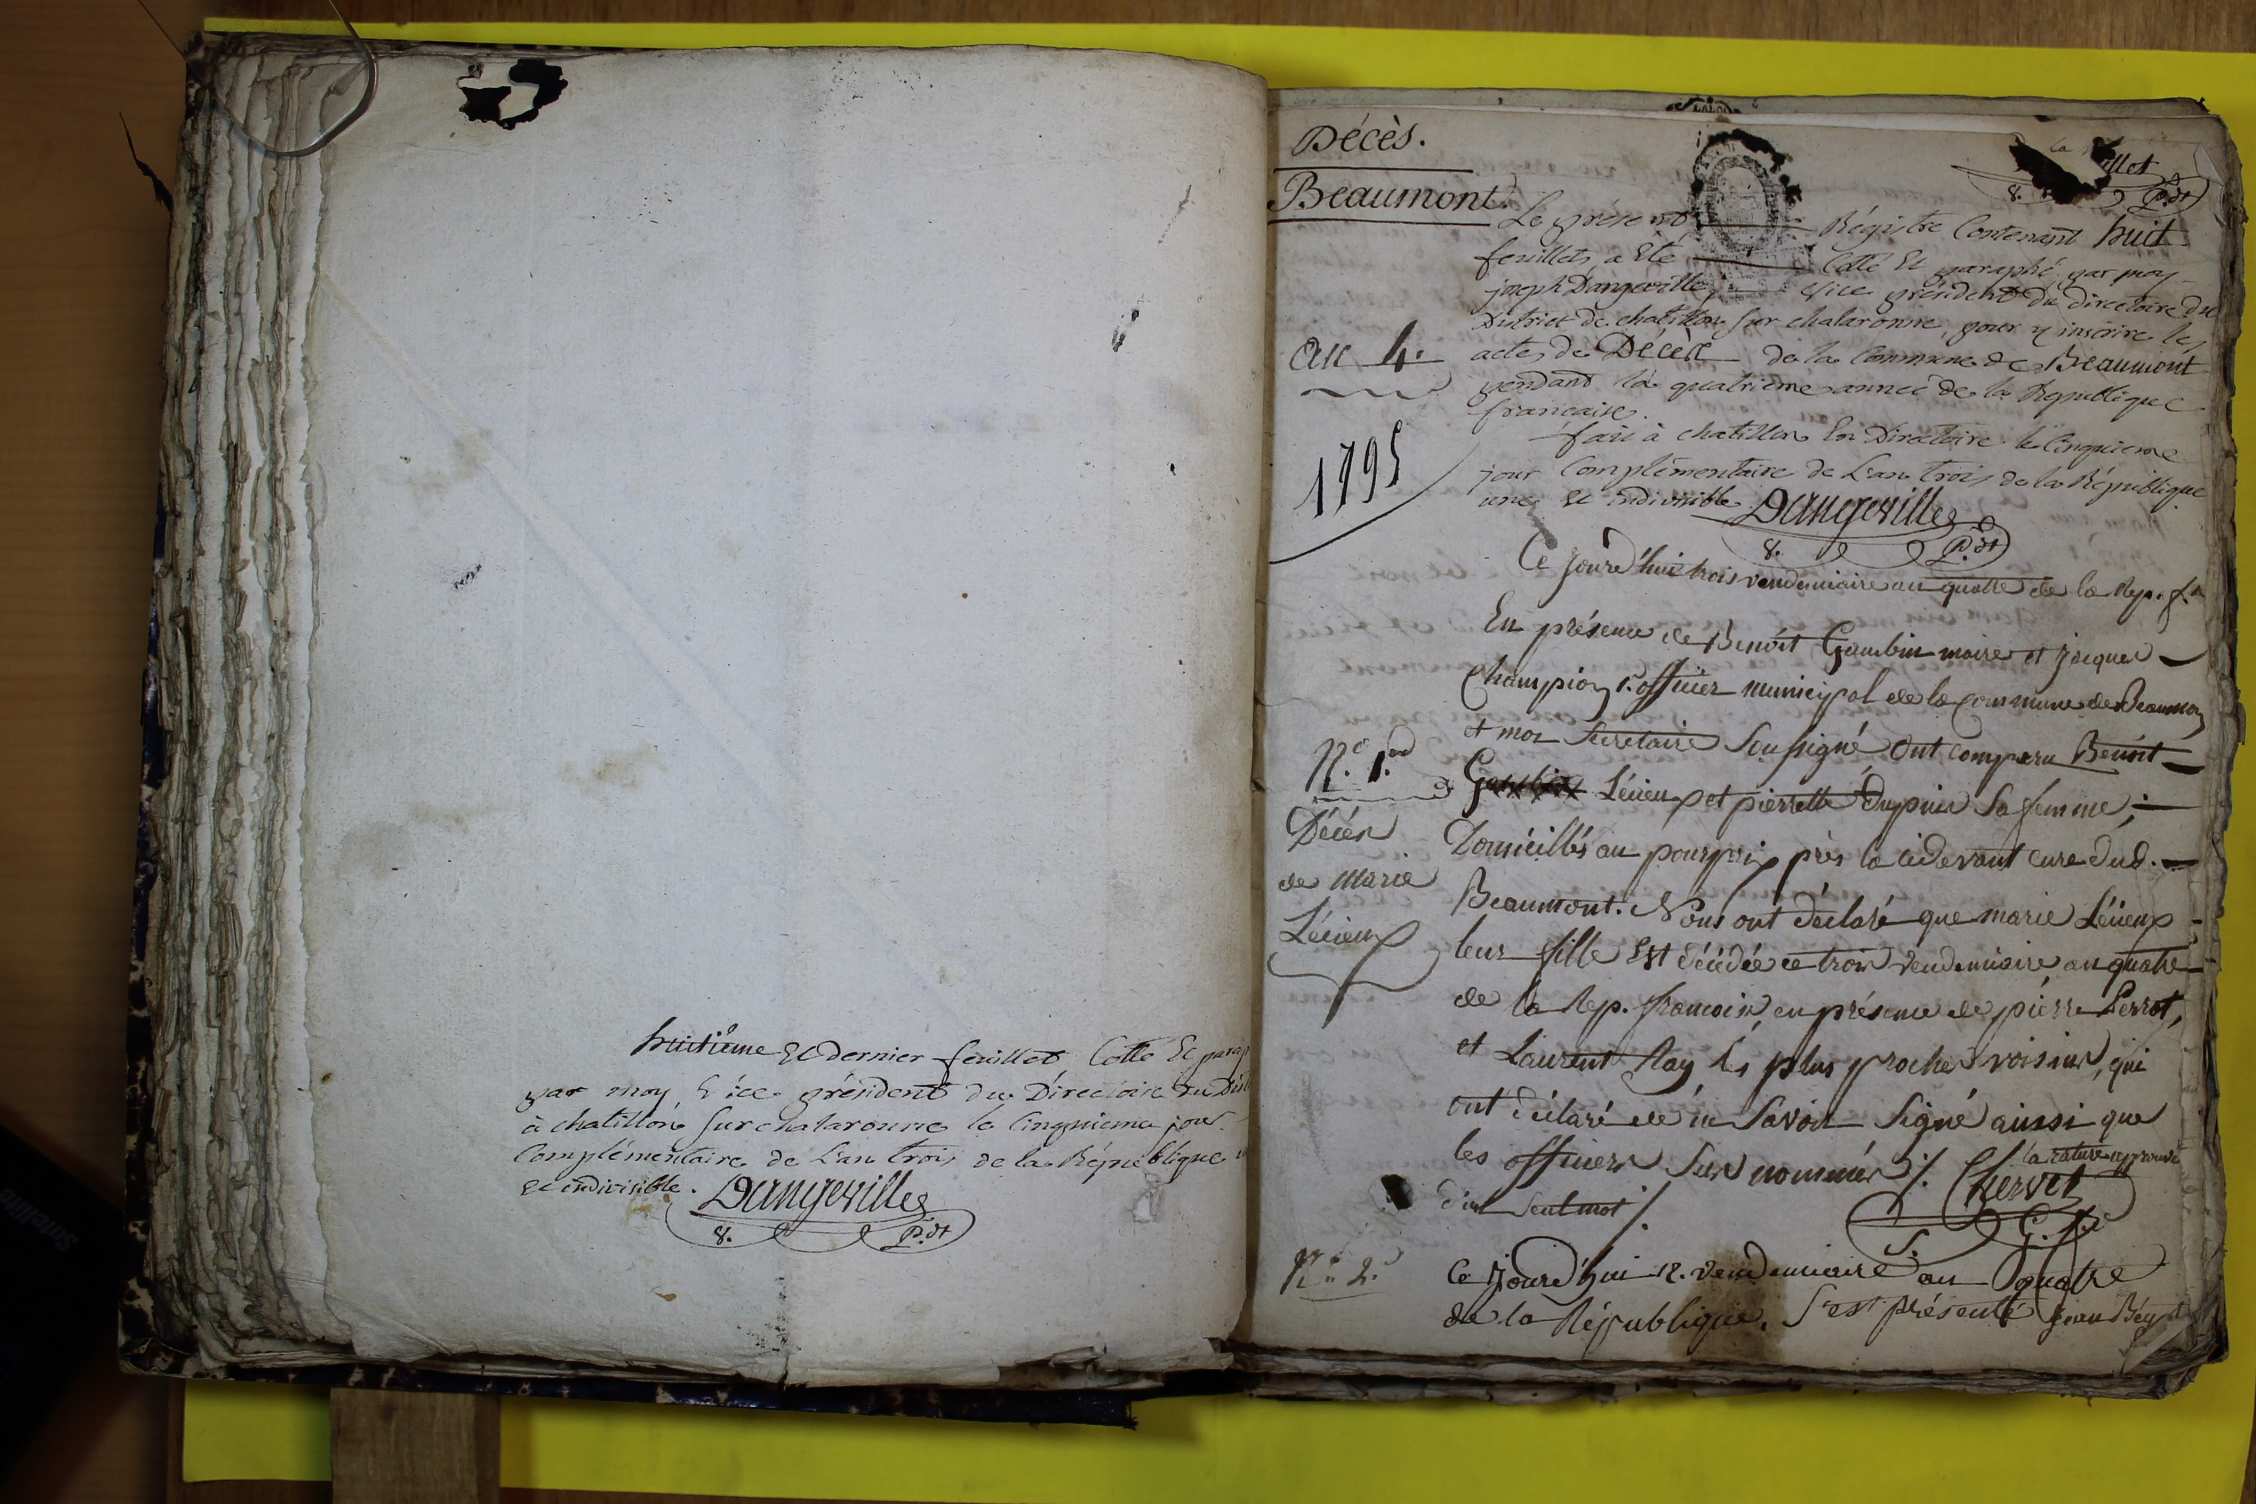 huitième Et dernier feuillet Cotté Et parap
par moy Vice président du Directoire du Dist
à chatillon Sur chalaronne le Cinquieme jour
Complémentaire de L'an trois de la République
et indivisible. Dangeville
8. P.dt
Décès.
Beaumont.
illet
8. P.dt
Le présent Régistre Contenant huit
feuillets a Eté Cotté Et paraphé par moy
joseph Dangeville, Vice président du directoire du
District de chatillon Sur chalaronne, pour y inscrire les
actes de Décès de la Commune de Beaumont
pendant la quatrieme année de la République
française.
fait à chatillon En Directoire le Cinquieme
jour Complémentaire de L'an trois de la République
une et indivisible Dangeville
8. P.dt
an 4.
1795
Ce jourd'hui trois vendemiaire an quatre de la Rep. f.
En présence de Benoit Gambin maire et jacques
Champion 1. officier municipal de la Commune de Beaumon
et moi Secretaire Soussigné ont comparu Benoit
Lécieux et pierrette dupuis Sa femme;
Domicillés au pourprix près la cidevant cure dud.
Beaumont. Nous ont déclaré que marie Lécieux
leur fille Est décédée ce trois vendemiaire an quatre
de la Rep. francoise en présence de pierre Perrot,
et Laurent Ray les plus proches voisins, qui
ont déclaré ne Savoir Signé aussi que
les officiers Sus nommés /. la rature approuvé
d'un Seul mot /. Chervet
S. G.
N.o 1.er
Décès
de Marie
Lécieux
N.o 2.
Ce Jourd'hui 12. vendemiaire an quatre
de la République. S'est présenté